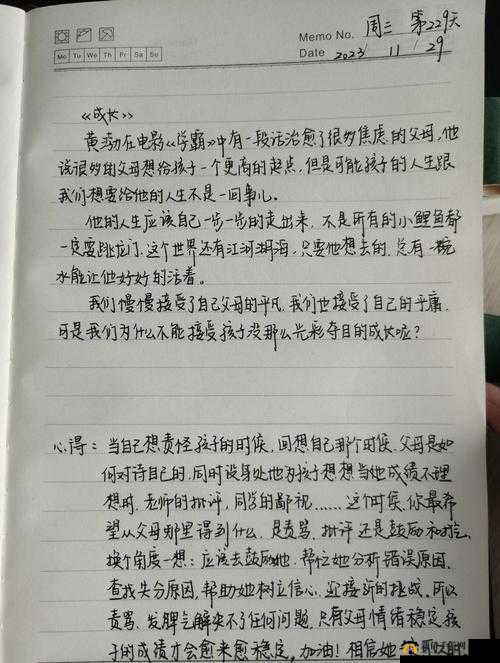 周三 第229天
Memo No.
Mo Tu We Th Fr Sa Su
Date 2023 / 11 / 29
《成长》
黄渤在电影《学霸》中有一段话治愈了很多焦虑的父母，他
说很多的父母想给孩子一个更高的起点，但是可能孩子的人生跟
我们想要给他的人生不是一回事儿。
他的人生应该自己一步一步的走出来，不是所有的小鲤鱼都
一定要跳龙门，这个世界还有江河湖海，只要他想去的，总有一碗
水能让他好好的活着。
我们慢慢接受了自己父母的平凡，我们也接受了自己的平庸，
可是我们为什么不能接受孩子没那么光彩夺目的成长呢？
心得：当自己想责怪孩子的时候，回想自己那个时候，父母是如
何对待自己的，同时设身处地为孩子想想当她成绩不理
想时，老师的批评，同学的鄙视……这个时候，你最希
望从父母那里得到什么，是责骂、批评还是鼓励和
换个角度一想：应该去鼓励她，帮位她分析错误原因，
查找失分原因，帮助她树立信心，迎接新的挑战。所以
责骂、发脾气解决不了任何问题，只有父母情绪稳定，孩
子的成绩才会愈来愈稳定。加油！相信她